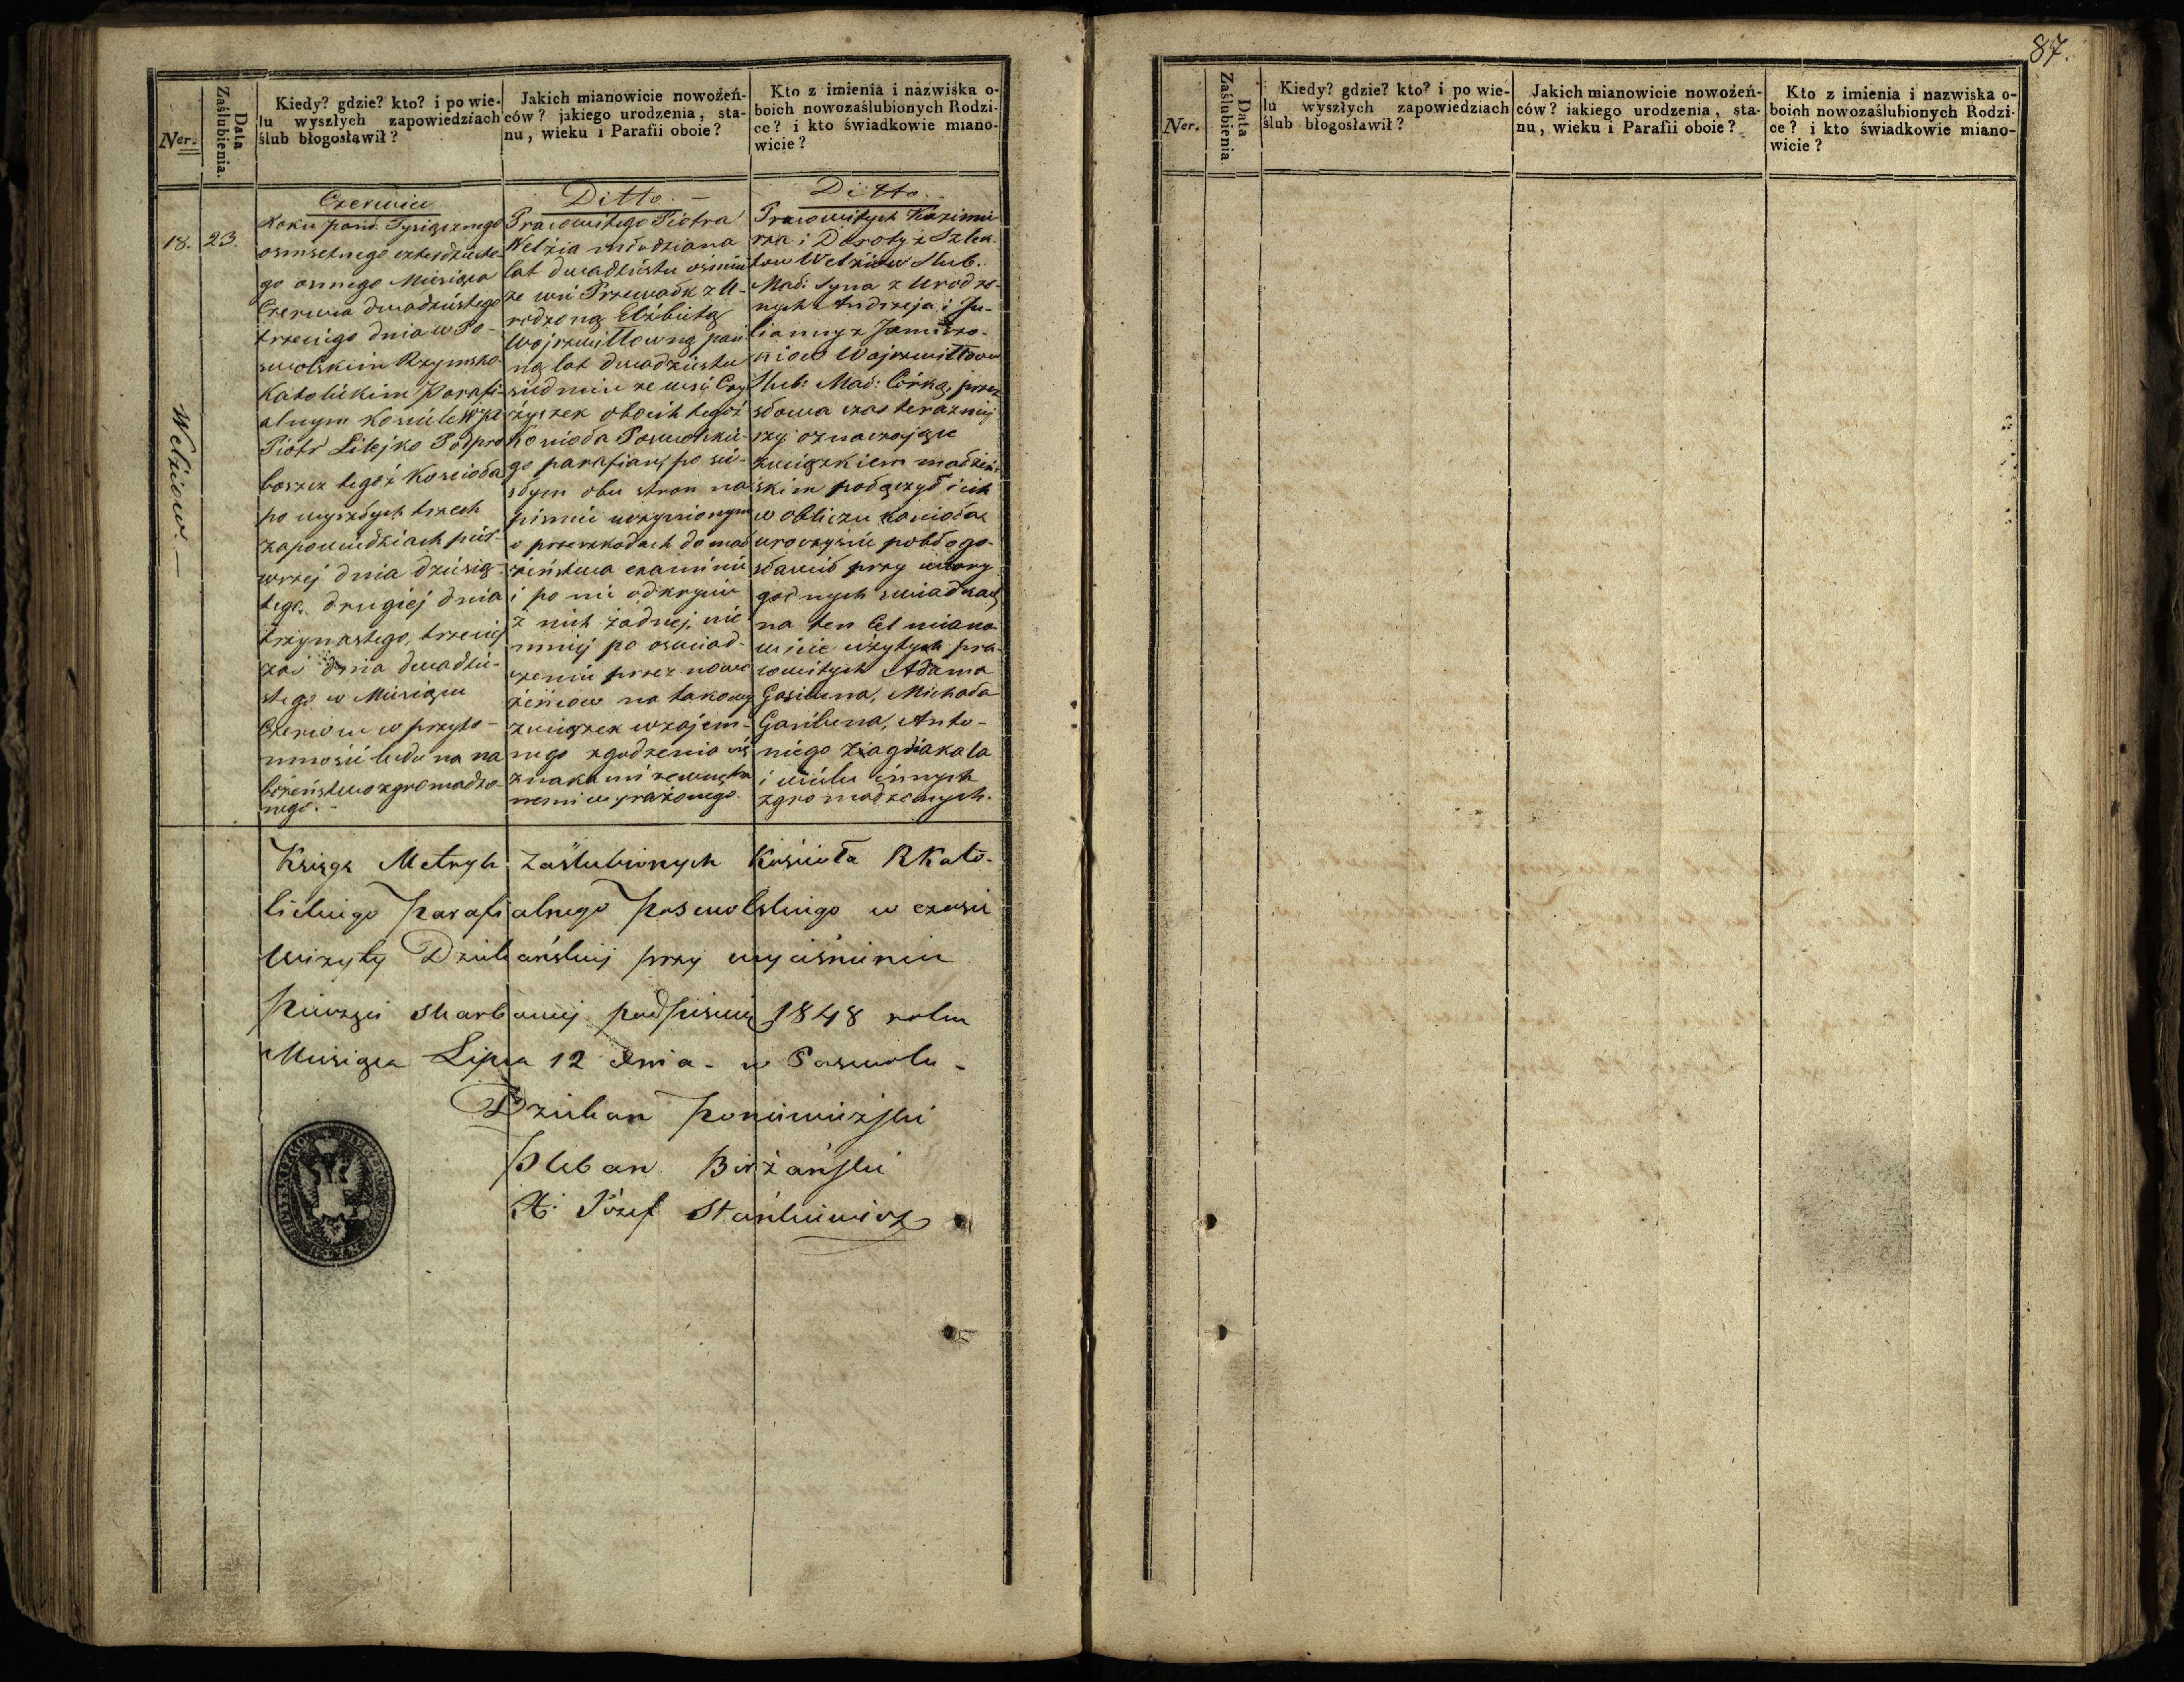 Ner.
Data Zaślubienia.
Kiedy? gdzie? kto? i po wie-
lu wyszłych zapowiedziach
ślub błogosławił?
Jakich mianowicie nowożeń-
ców? jakiego urodzenia, sta-
nu, wieku i Parafii oboie?
Kto z imienia i nazwiska o-
boich nowozaślubionych Rodzi-
ce? i kto świadkowie miano-
wicie?
18.
23.
Welziow. —
Czerwiec
Roku pańs. Tysiącznego
osmsetnego czterdzieste-
go osmego Miesiąca
Czerwca dwadziestego
trzeciego dnia w Po-
swolskim Rzymsko
Katolickim Parafi-
alnym Kościele WJX
Piotr Litejko Podpro
boszcz tegoż Kościoła
po wyszłych trzech
zapowiedziach pier-
wszej dnia dziesią-
tego, drugiej dnia
trzynastego, trzeciej
zaś dnia dwadzie-
stego w Miesiącu
Czerwcu w przyto-
mności ludu na na
bożeństwo zgromadzo-
nego. -
Ditto. —
Pracowitego Piotra
Welzia młodziana
lat dwadziestu ośmiu
ze wsi Przewałk z U-
rodzoną Elżbietą
Wojszwiłłowną pan
ną lat dwadziestu
siedmiu ze wsi
obojch tegoż
Kościoła Poswolskie-
go parafian, po ści-
słym obu stron na
piśmie uczynionym
o przeszkodach do mał
żeństwa examinie
i po nie odkryciu
z nich żadnej, nie
mniej po oświad-
czeniu przez nowo
żeńcow na takowy
związek wzajem-
nego zgodzenia się
znakami zewnętrz
nemi wyrażonego.
Ditto.
Pracowitych Kazimie-
rza i Doroty z Szlek-
tow Welziow Slub.
Mał: Syna z Urodzo-
nych Andrzeja i Ju-
lianny z
Wojszwiłłow
Slub: Mał: Córką, przez
słowa czas teraźniej
szy oznaczające
związkiem małżeń-
skim połączył i ich
w obliczu Kościoła
uroczyście pobłogo-
sławił przy wiary
godnych swiadkach
na ten Cel miano
wicie użytych pra-
cowitych Adama
Gasiuna, Michała
Gasiluna, Anto-
niego Ziagdiakala
i wielu innych
zgromadzonych.
Księgę Metryk zaślubionych Kościoła RKato-
lickiego Parafialnego Poswolskiego w czasie
Wizyty Dziekańskiej przy wyciśnieniu
Pieczęci skarbowej podpisuię 1848 roku
Miesiąca Lipca 12 dnia - w Poswolu -
Dziekan Poniewiezski
Pleban Birżański
X. Józef Stankiewicz
87.
Ner.
Data Zaślubienia.
Kiedy? gdzie? kto? i po wie-
lu wyszłych zapowiedziach
ślub błogosławił?
Jakich mianowicie nowożeń-
ców? iakiego urodzenia, sta-
nu, wieku i Parafii oboie?
Kto z imienia i nazwiska o-
boich nowozaślubionych Rodzi-
ce? i kto świadkowie miano-
wicie?